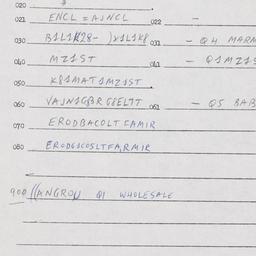 020
021 ENCL = AJNCL 022 —
030 B1L1K28- )X1L1K8 031 - Q4 MARA
040 MZ1ST 041 - Q1MZ1S
050 K81MAT1MZ1ST
060 VAJN1GBR G8ELTT 061 - Q5 BAB
070 ERODBACOLT FAMIR
080 ERODG1COSLTFA,RMIR
900 ((ANGROU Q1 WHOLESALE